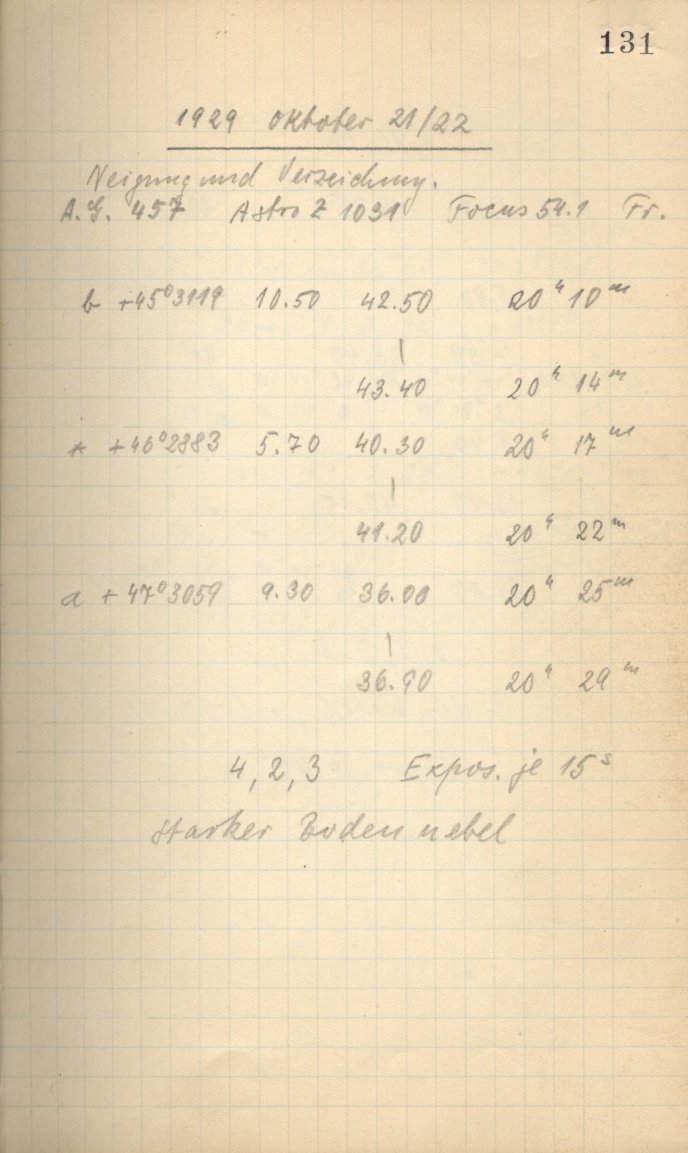 131
1929 Oktober 21/22
Neigung und Verzeichnung.
A.G. 457 Astro Z 1031 Focus 54.1 Fr.
b +45°3119 10.50 42.50 20h 10m
|
43.40 20h 14m
* +46°2883 5.70 40.30 20h 17m
|
41.20 20h 22m
a +47°3059 9.30 36.00 20h 25m
|
36.90 20h 29m
4, 2, 3 Expos. je 15s
starker Bodennebel